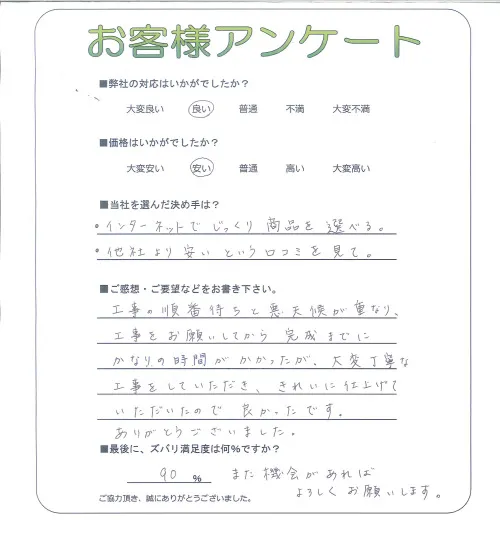 お客様アンケート
■弊社の対応はいかがでしたか？
大変良い 良い 普通 不満 大変不満
■価格はいかがでしたか？
大変安い 安い 普通 高い 大変高い
■当社を選んだ決め手は？
・インターネットでじっくり商品を選べる。
・他社より安いという口コミを見て。
■ご感想・ご要望などをお書き下さい。
工事の順番待ちと悪天候が重なり、
工事をお願いしてから完成までに
かなりの時間がかかったが、大変丁寧な
工事をしていただき、きれいに仕上げて
いただいたので良かったです。
ありがとうございました。
■最後に、ズバリ満足度は何％ですか？
90 % また機会があれば
よろしくお願いします。
ご協力頂き、誠にありがとうございました。